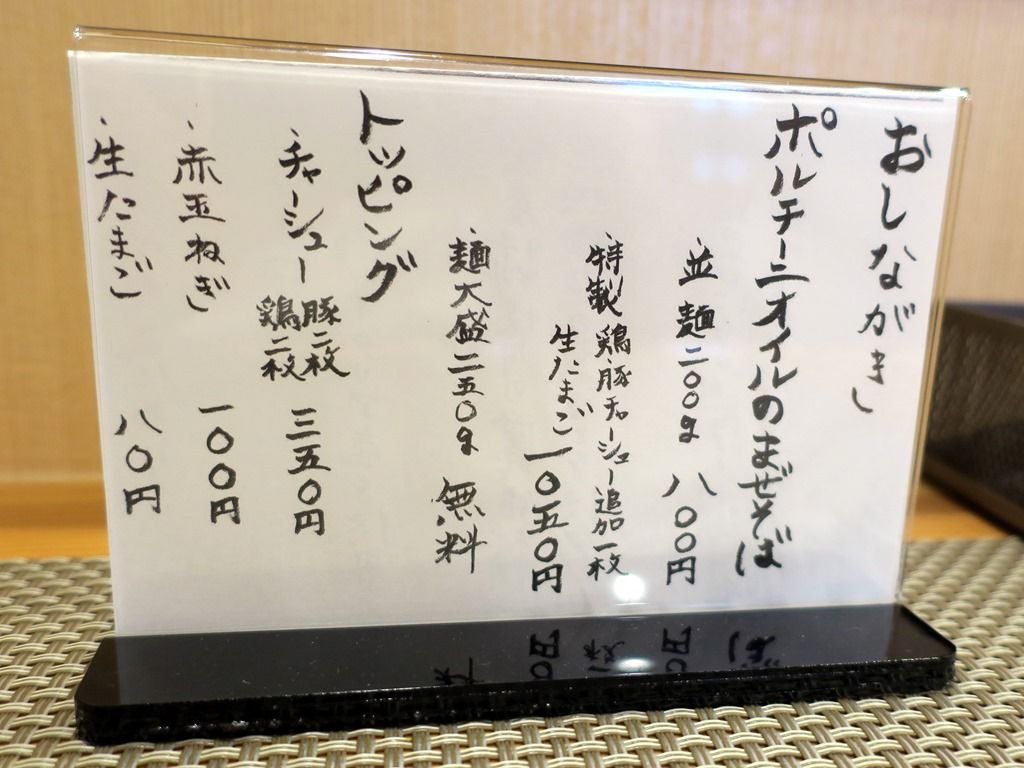 おしながき
ポルチーニオイルのまぜそば
、並 麺二〇〇g 八〇〇円
、特製 鶏豚チャーシュー追加一枚
生たまご 一〇五〇円
、麺大盛二五〇g 無料
トッピング
、チャーシュー 豚二枚
鶏二枚 三五〇円
、赤玉ねぎ 一〇〇円
、生たまご 八〇円